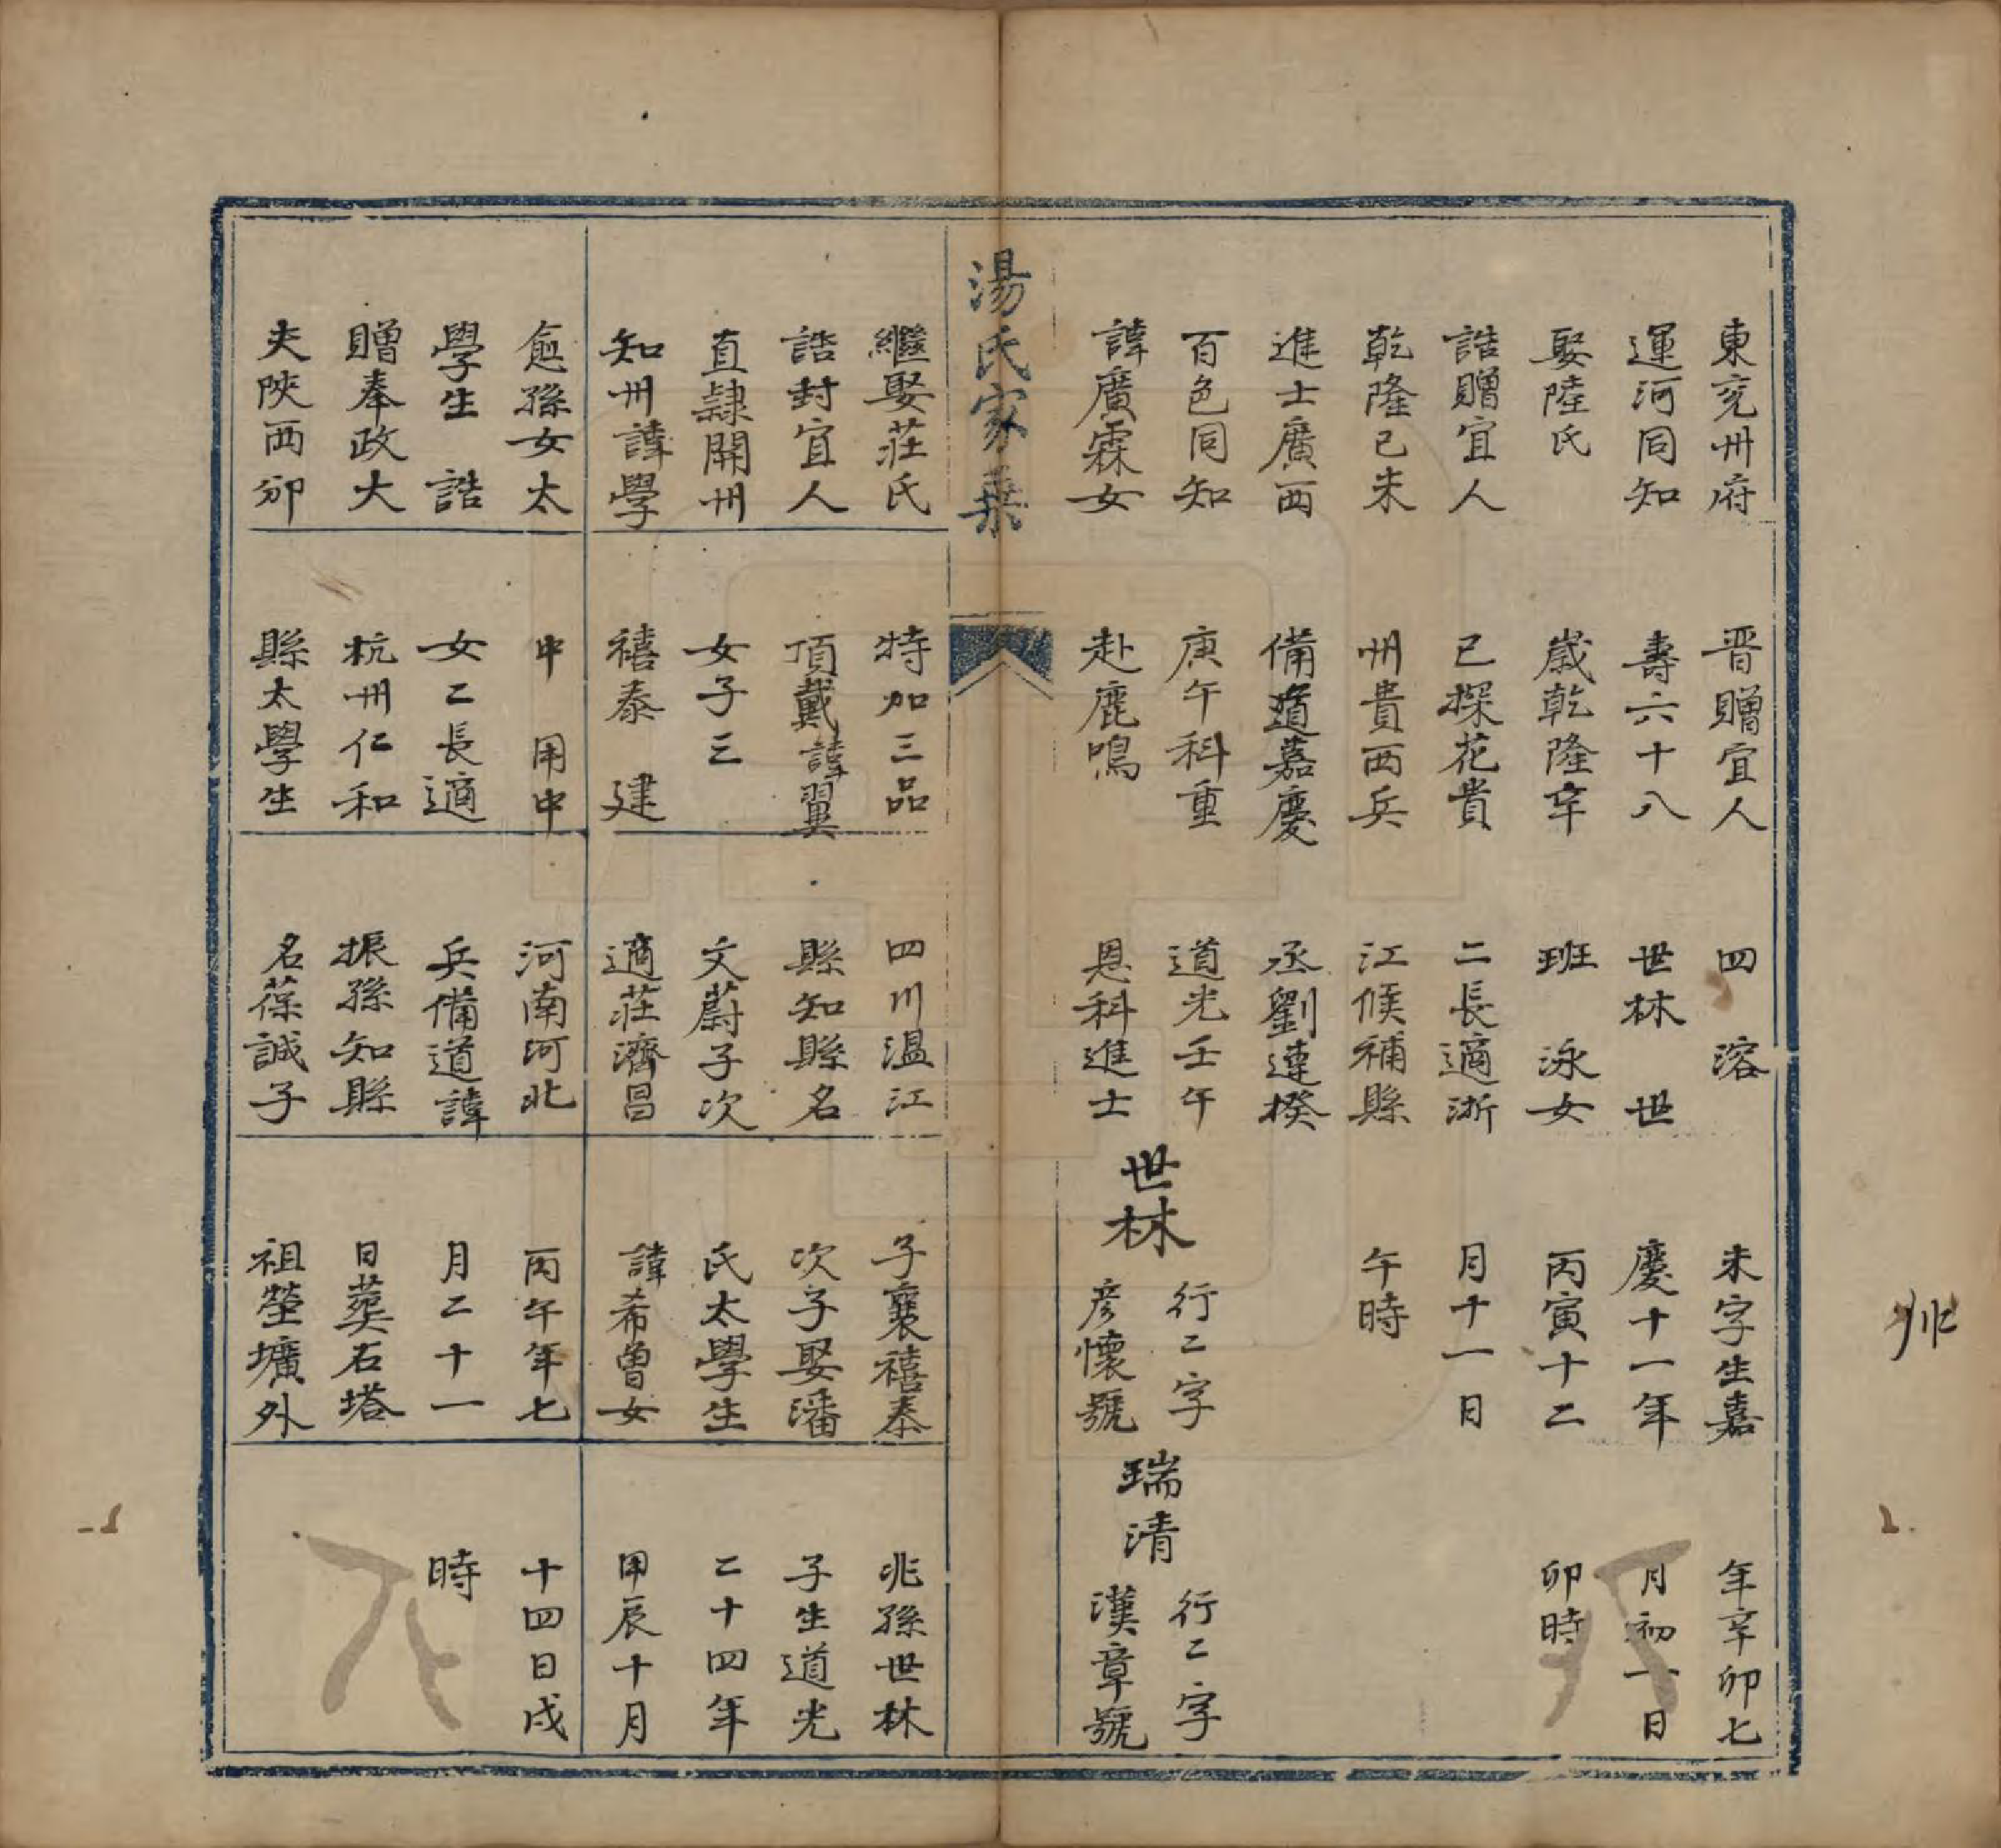 東兖州府
運河同知
娶陸氏
誥贈宜人
乾隆己未
進士廣西
百色同知
諱廣霖女
晋贈宜人
壽六十八
歲乾隆辛
已探花貴
州貴西兵
備道嘉慶
庚午科重
赴鹿鳴
四 溶
世林 世
班 泳女
二長適浙
江候補縣
丞劉蓮揆
道光壬午
恩科進士
未字生嘉
慶十一年
丙寅十二
月十一日
午時
世林
行二字
彦懷號
年辛卯七
月初一日
卯時
瑞清
行二字
漢章號
湯氏家乗
繼娶莊氏
誥封宜人
直隷開州
知州諱學
愈孫女太
學生 誥
贈奉政大
夫陝西邠
特加三品
頂戴諱翼
女子三
禧泰 建
中 用中
女二長適
杭州仁和
縣太學生
四川温江
縣知縣名
文蔚子次
適莊濟昌
河南河北
兵備道諱
振孫知縣
名葆誠子
子襄禧泰
次子娶潘
氏太學生
諱希曽女
丙午年七
月二十一
日葬石塔
祖塋壙外
兆孫世林
子生道光
二十四年
甲辰十月
十四日戌
時